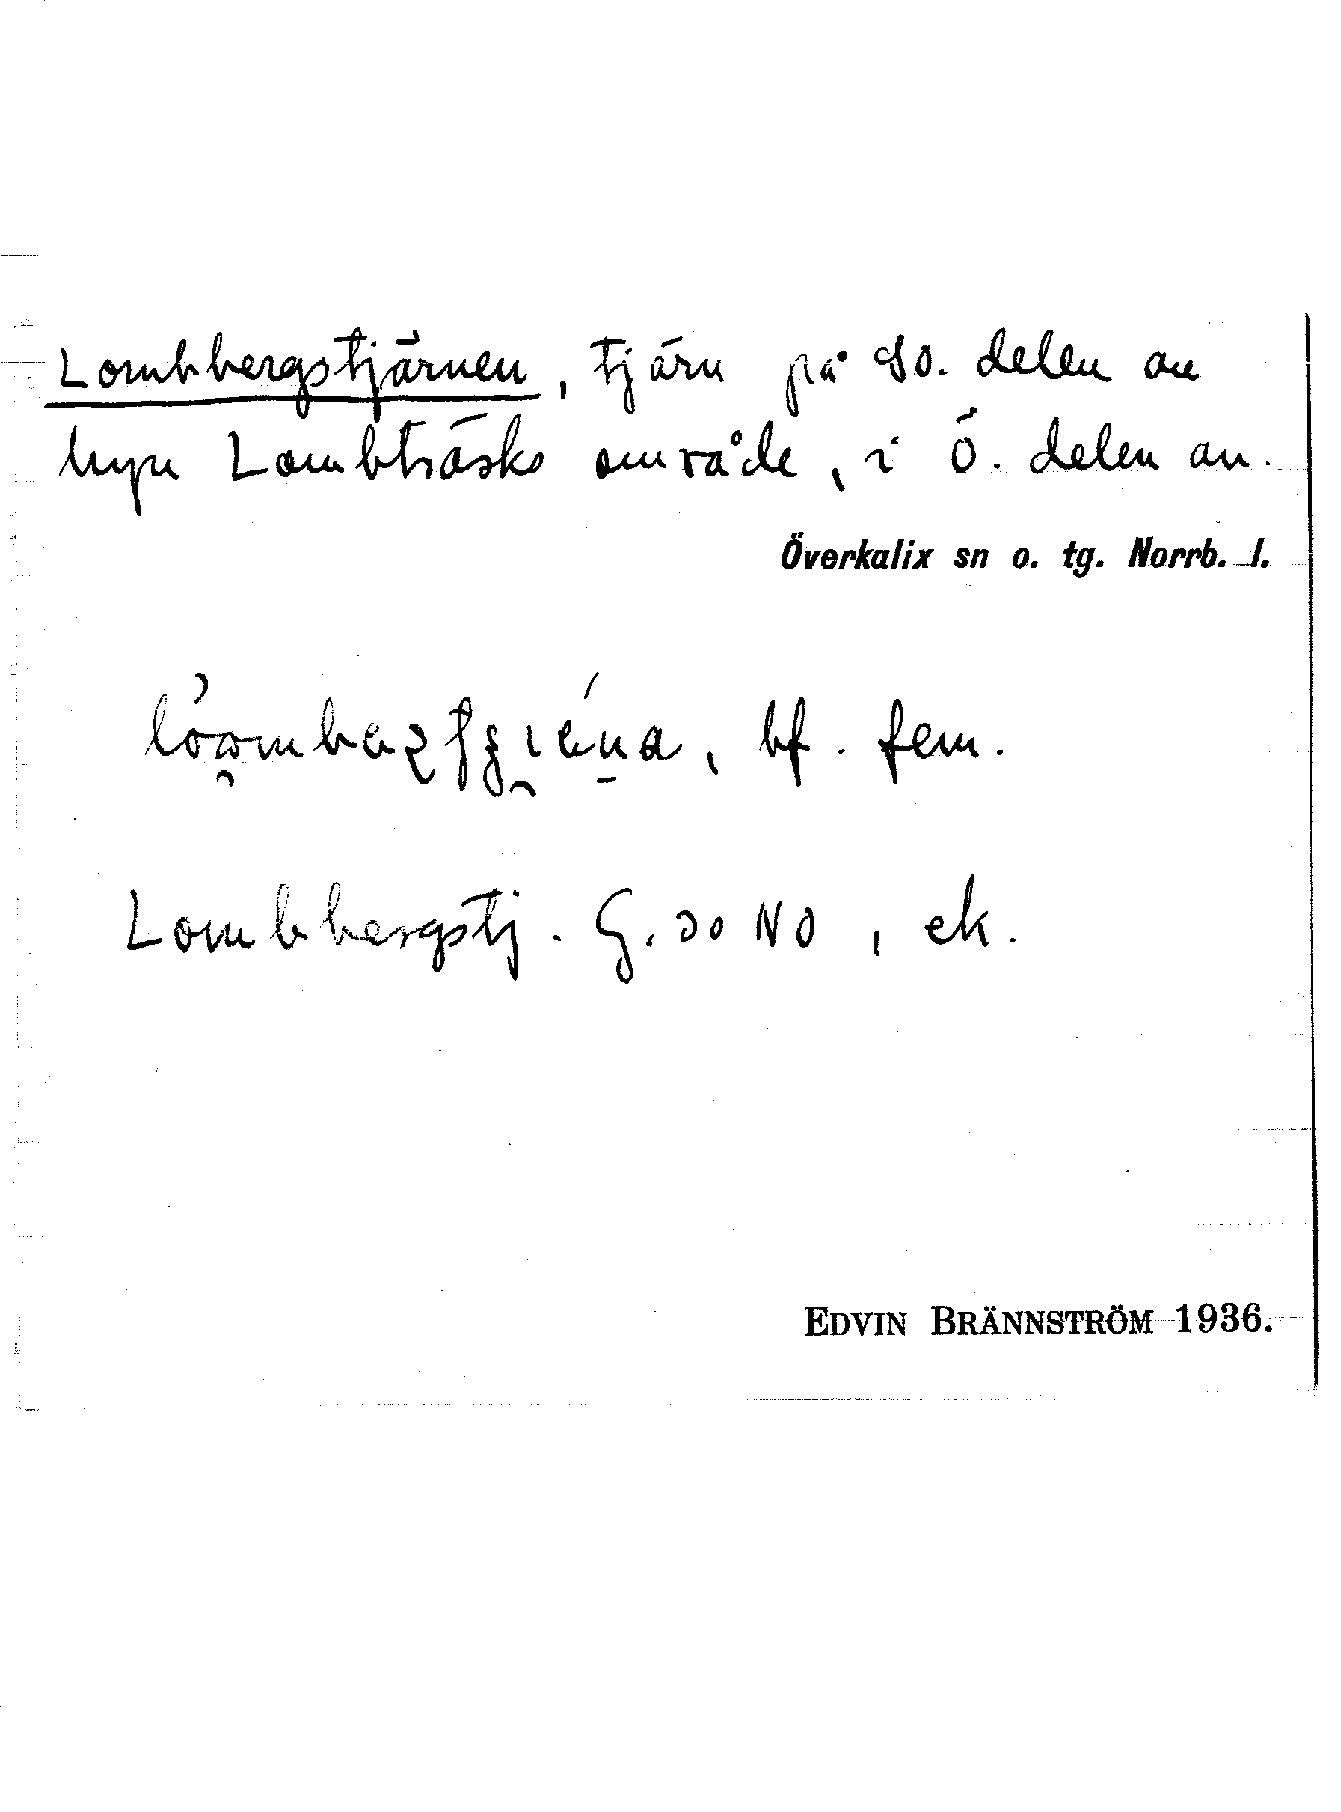 Lombbergstjärnen, tjärn på SO. delen av
byn Lombträsks område, i Ö. delen av.
Överkalix sn o. tg. Norrb. l.
bf. fem.
Lombbergstj. G. 30 NO, ek.
EDVIN BRÄNNSTRÖM 1936.